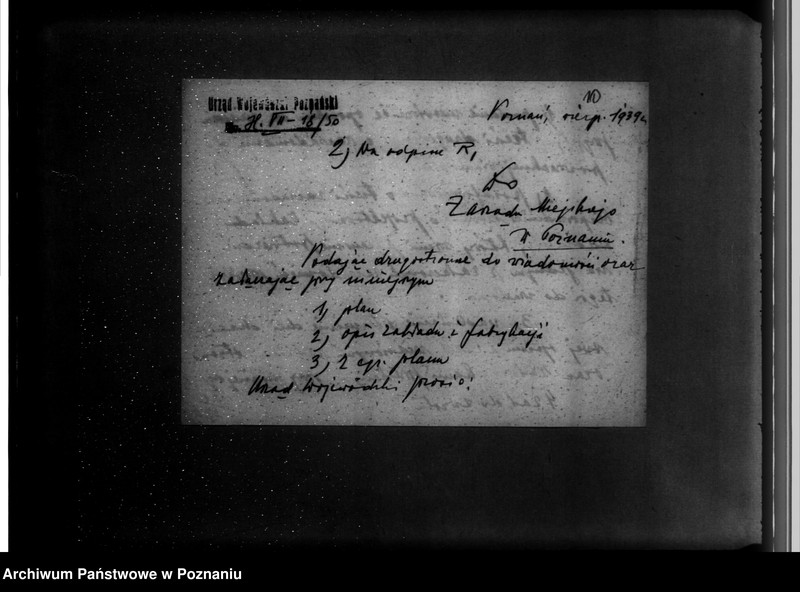 Urząd Wojewódzki Poznański
H. VII-18/50
Poznań, sierp. 1939 r.
2) Na odpisie R,
Do
Zarządu Miejskiego
w Poznaniu.
Podając drugostronne do wiadomości oraz
załączając przy niniejszym
1) plan
2) opis zakładu i fabrykacji
3) 2 egz. planu
Urząd Wojewódzki prosi o:
Archiwum Państwowe w Poznaniu